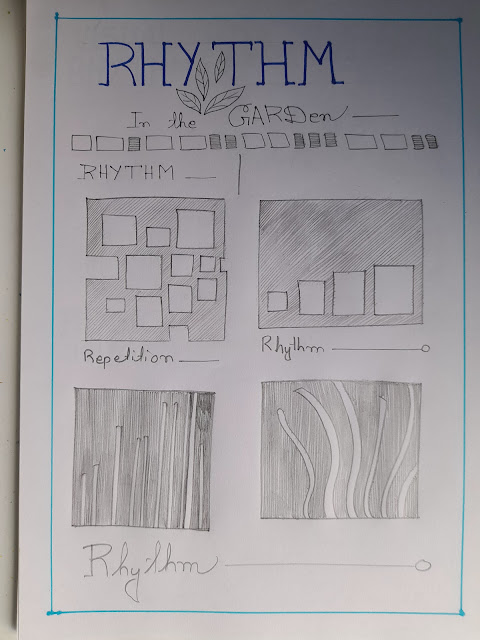 RHYTHM
In the GARDen
RHYTHM
Repetition
Rhythm
Rhythm